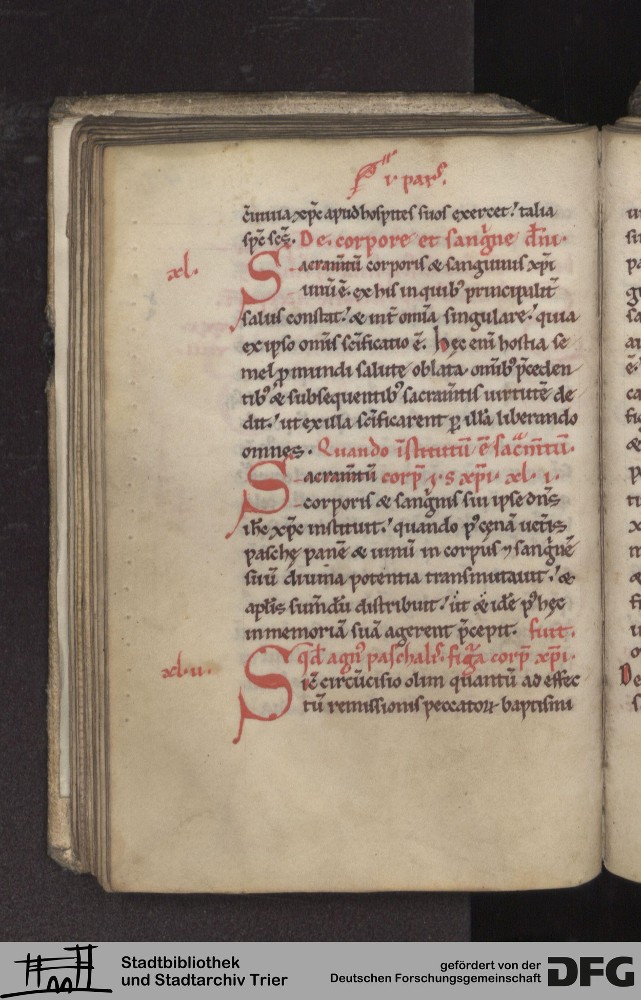 i. pars.
c̄uiuia xp̄c apud hospites suos exercet. talia
sp̄c sc̄s. De. corpore et sangīne d̄ni.
xl.
Sacram̄tū corporis & sanguinis xp̄i
unū ē. ex his in quib; principalit̄
salus constat. & int̄ om̄ia singulare. quia
ex ipso om̄is sc̄ificatio ē. hęc eni hostia se
mel p mundi salute oblata omib; p̄ceden
tib; & subsequentib; sacram̄tis uirtutē de
dit. ut ex illa sc̄ificarent p illā liberando
omnes. Quando īstitutū ē sac̄m̄tum.
Sacram̄tū corp̄ ⁊ s xp̄i. xl. i.
corporis & sangīnis sui ipse dn̄s
ih̄c xp̄c instituit. quando p' cęnā uet̄is
paschę panē & uinū in corpus ⁊ sangīnē
suū diuina potentia transmutauit. &
ap̄lis sum̄dū distribuit. ut & idē p' hęc
in memoriā suā agerent p̄cepit. fuit.
xl. ii.
Qd̄ agn' paschal' figīa corp̄ xp̄i.
Sic̄ circūcisio olim quantū ad effec
tū remissionis peccatoꝝ baptismi
De
Stadtbibliothek
und Stadtarchiv Trier
gefördert von der
Deutschen Forschungsgemeinschaft
DFG